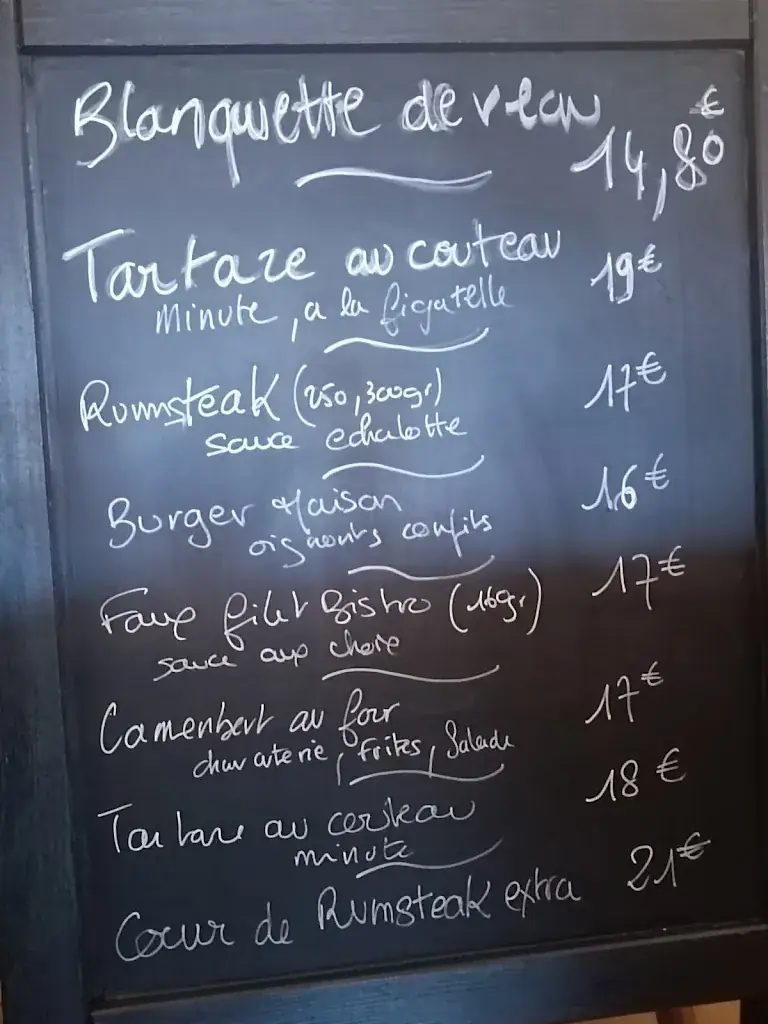 Blanquette de veau
€
14,80
Tartare au couteau 19€
Minute, a la figatelle
Rumsteak (250,300gr) 17€
sauce echalotte
Burger Maison 16€
oignonts confits
Faux filet Bistro (160gr) 17€
sauce aux choix
Camenbert au four 17€
charcuterie, frites, Salade
Tartare au couteau 18€
minute
Cœur de Rumsteak extra 21€